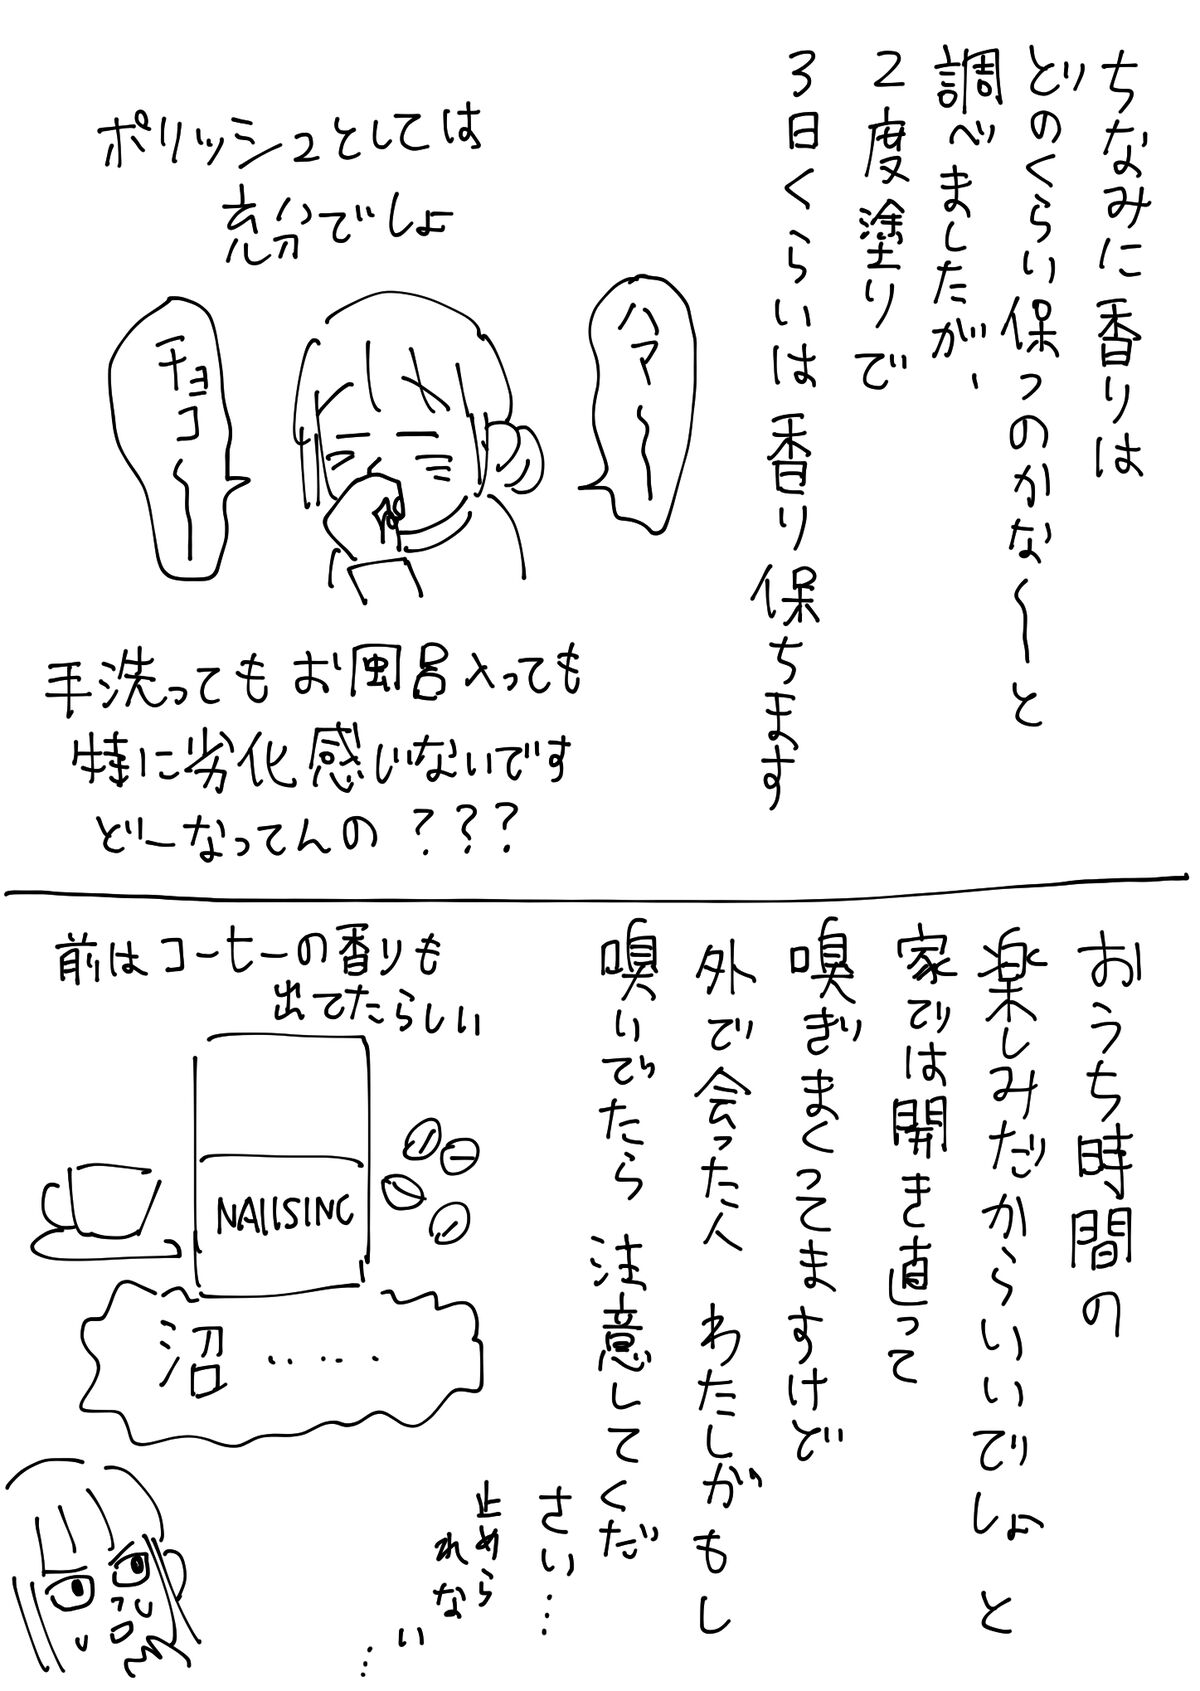 ちなみに香りは
どのくらい保つのかな〜と
調べましたが、
2度塗りで
3日くらいは香り保ちます
ポリッシュとしては
充分でしょ
ハマ〜
チョコ〜
手洗ってもお風呂入っても
特に劣化感じないです
どーなってんの？？？
おうち時間の
楽しみだからいいでしょ と
家では開き直って
嗅ぎまくってますけど
外で会った人 わたしがもし
嗅いでたら 注意してくだ
さい…
止めら
れな
い…
前はコーヒーの香りも
出てたらしい
NAIlSINC
沼……